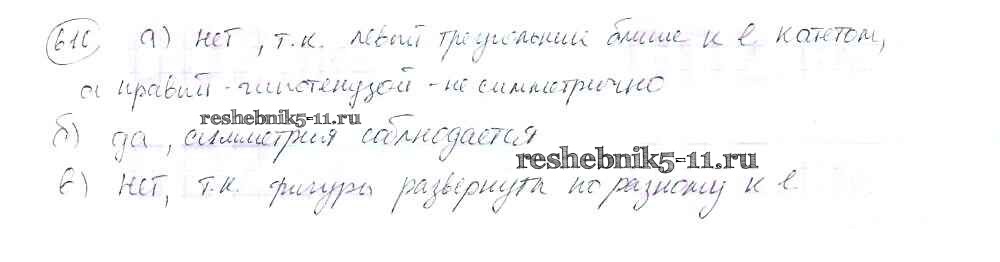 616 а) нет, т.к. левый треугольник ближе к l катетом,
а правый - гипотенузой - не симметрично
reshebnik5-11.ru
б) да, симметрия соблюдается
reshebnik5-11.ru
в) нет, т.к. фигуры развернуты по разному к l.